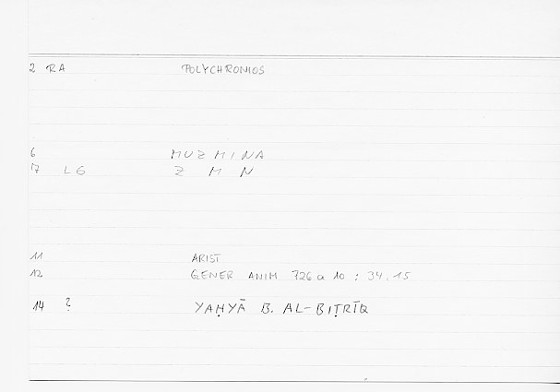 2 RA POLYCHRONIOS
6 MUZMINA
7 LG Z M N
11 ARIST
12 GENER ANIM 726 a 10 : 34.15
14 ? YAḤYĀ B. AL-BIṬRĪQ